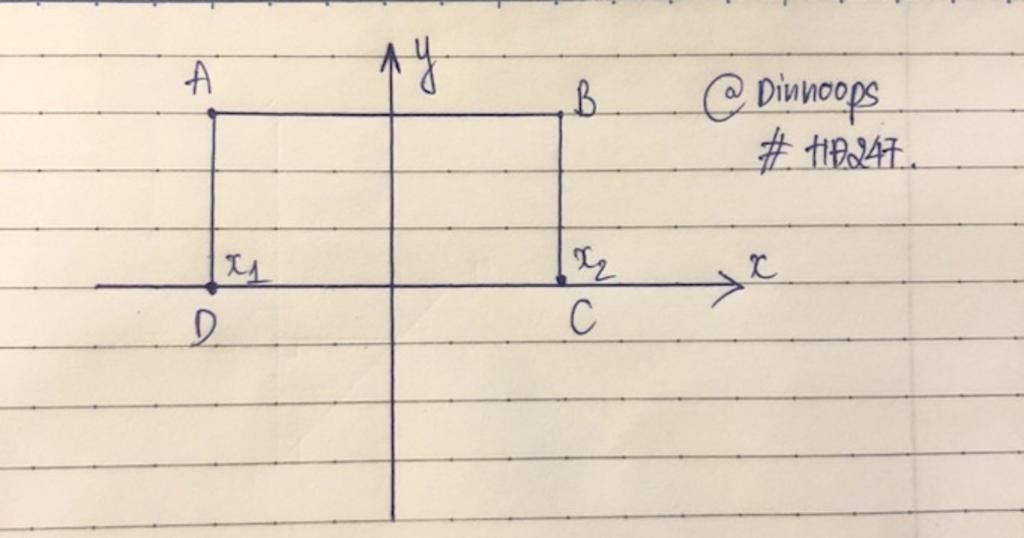 y
A
B
@Dinnoops
#HD247.
x₁
x₂
x
D
C